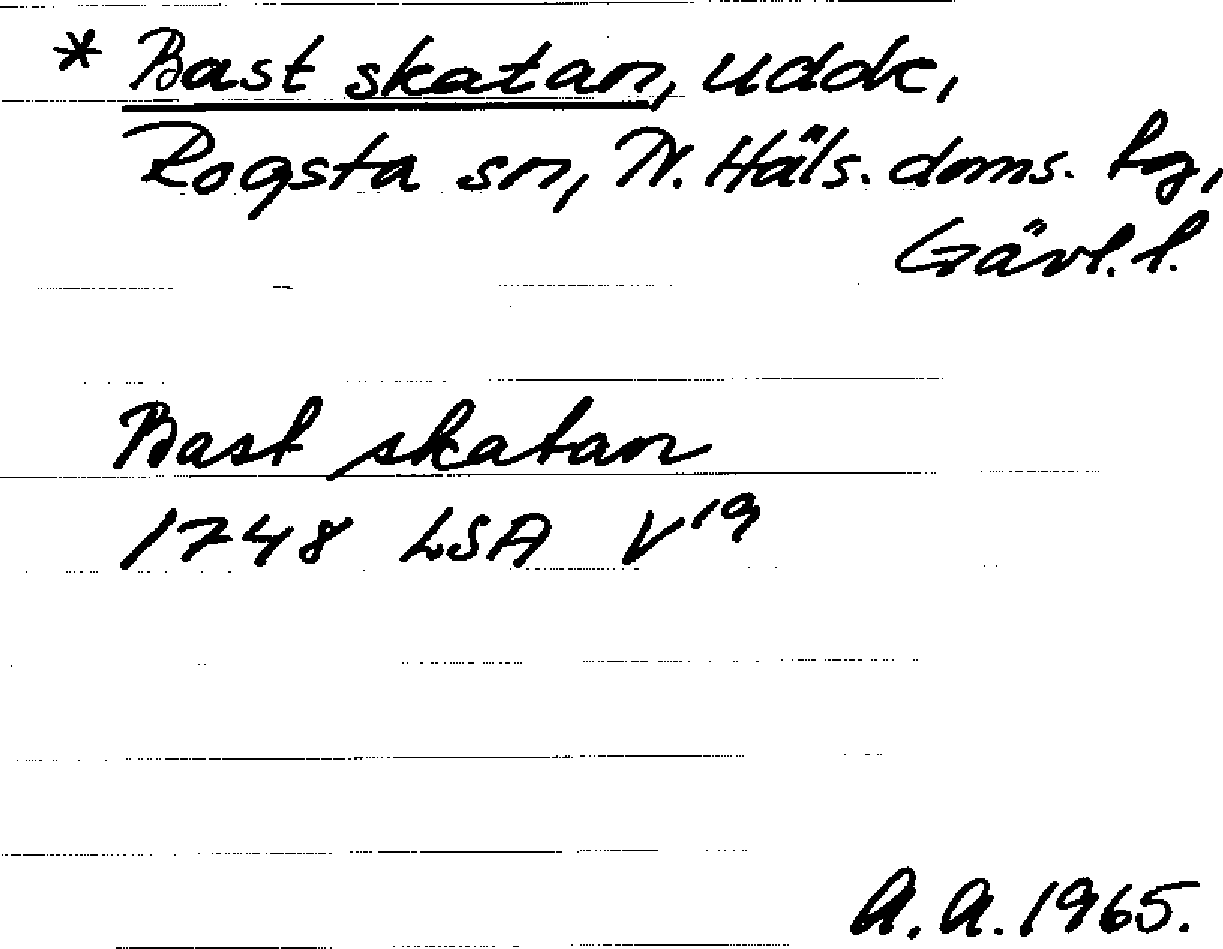 * Bast skatan, udde,
Rogsta sn, N. Häls. doms. hg,
Gävl. l.
Bast skatan
1748 LSA V¹⁹
A. A. 1965.